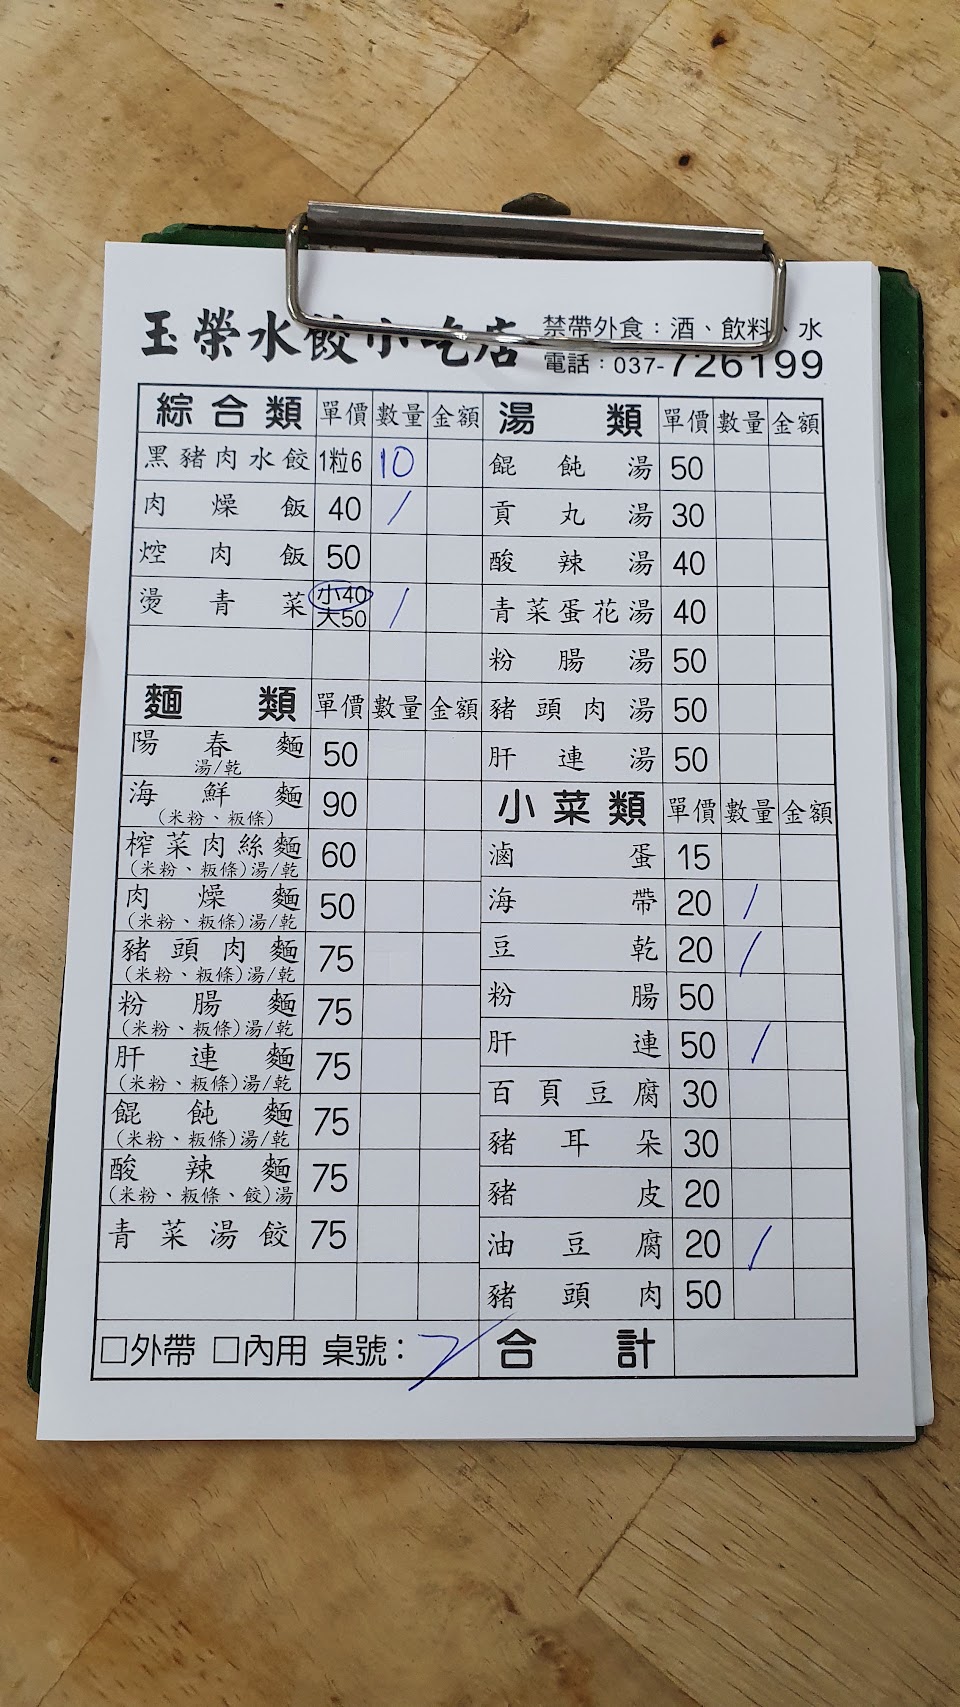 玉榮水餃小吃店
禁帶外食：酒、飲料、水
電話：037-726199
綜合類 單價 數量 金額
黑豬肉水餃 1粒6 10
肉燥飯 40 /
焢肉飯 50
燙青菜 小40 大50 /
麵類 單價 數量 金額
陽春麵 湯/乾 50
海鮮麵 (米粉、粄條) 90
榨菜肉絲麵 (米粉、粄條)湯/乾 60
肉燥麵 (米粉、粄條)湯/乾 50
豬頭肉麵 (米粉、粄條)湯/乾 75
粉腸麵 (米粉、粄條)湯/乾 75
肝連麵 (米粉、粄條)湯/乾 75
餛飩麵 (米粉、粄條)湯/乾 75
酸辣麵 (米粉、粄條、餃)湯 75
青菜湯餃 75
□外帶 □內用 桌號：
湯類 單價 數量 金額
餛飩湯 50
貢丸湯 30
酸辣湯 40
青菜蛋花湯 40
粉腸湯 50
豬頭肉湯 50
肝連湯 50
小菜類 單價 數量 金額
滷蛋 15
海帶 20 /
豆乾 20 /
粉腸 50
肝連 50 /
百頁豆腐 30
豬耳朵 30
豬皮 20
油豆腐 20 /
豬頭肉 50
合計